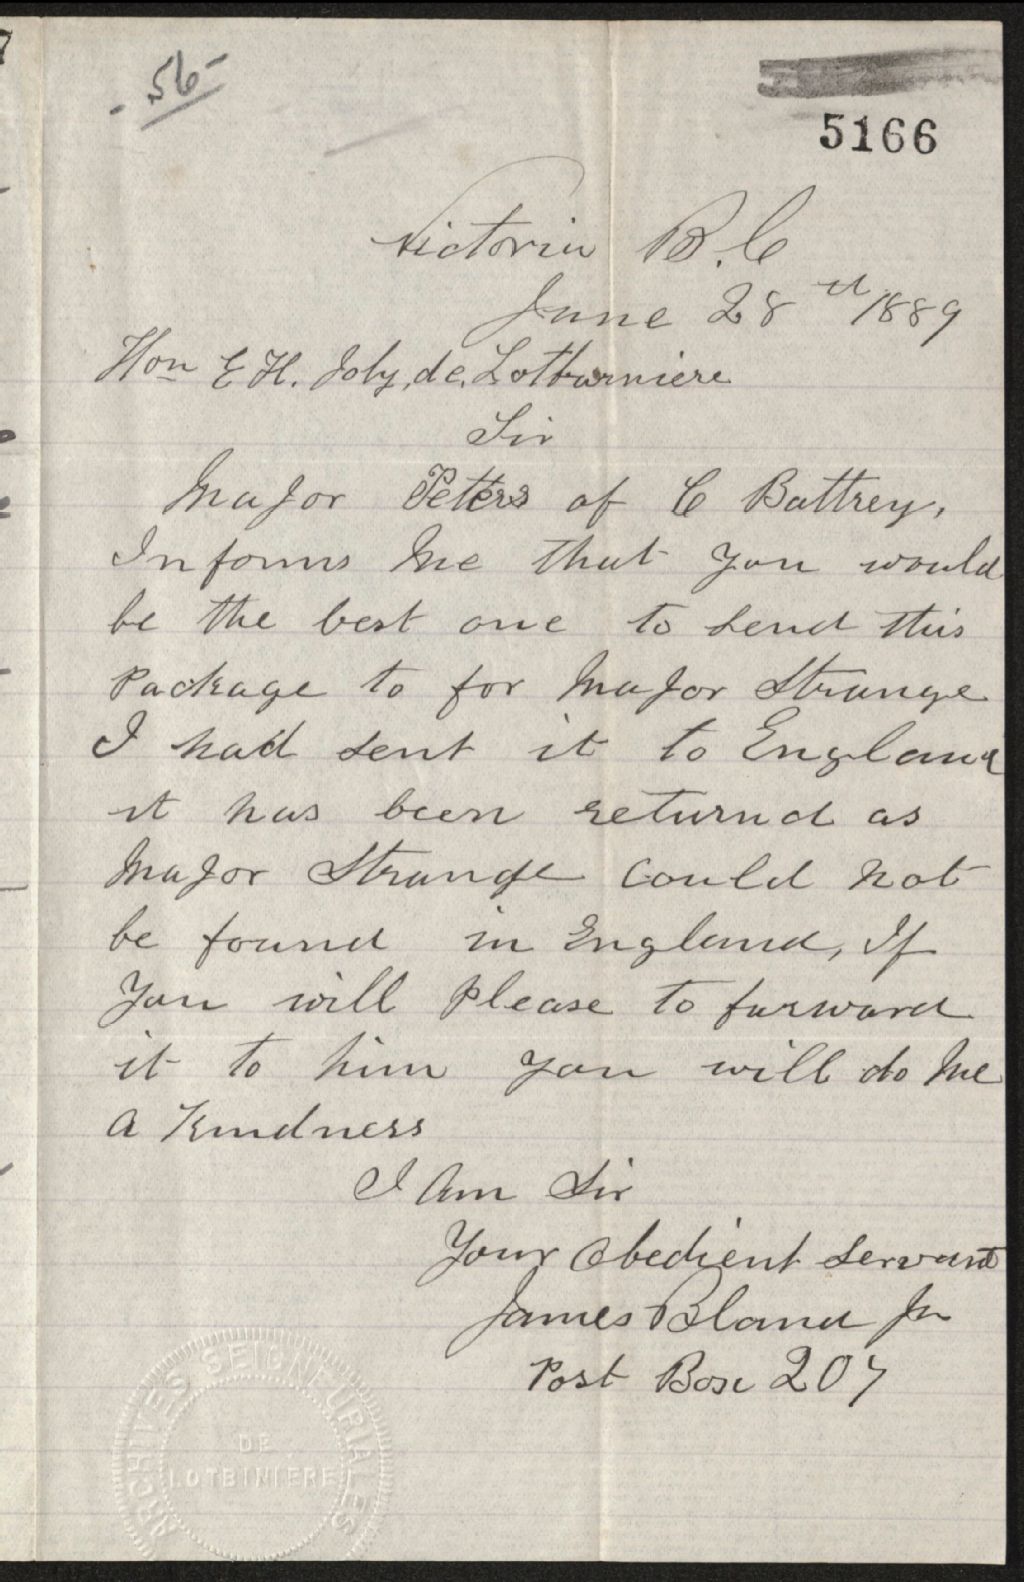 - 56 -
5166
Victoria B.C
June 28th 1889
Hon E H. Joly, de, Lotburniere
Sir
Major Peters of C Battrey,
Informs Me that you would
be the best one to send this
Package to for Major Strange
I had sent it to England
it has been returnd as
Major Strange could not
be found in England, If
you will Please to forward
it to him you will do Me
A Kindness
I Am Sir
Your Obedient Servant
James Bland Jr
Post Box 207
ARCHIVES SEIGNEURIALES
DE
LOTBINIERE